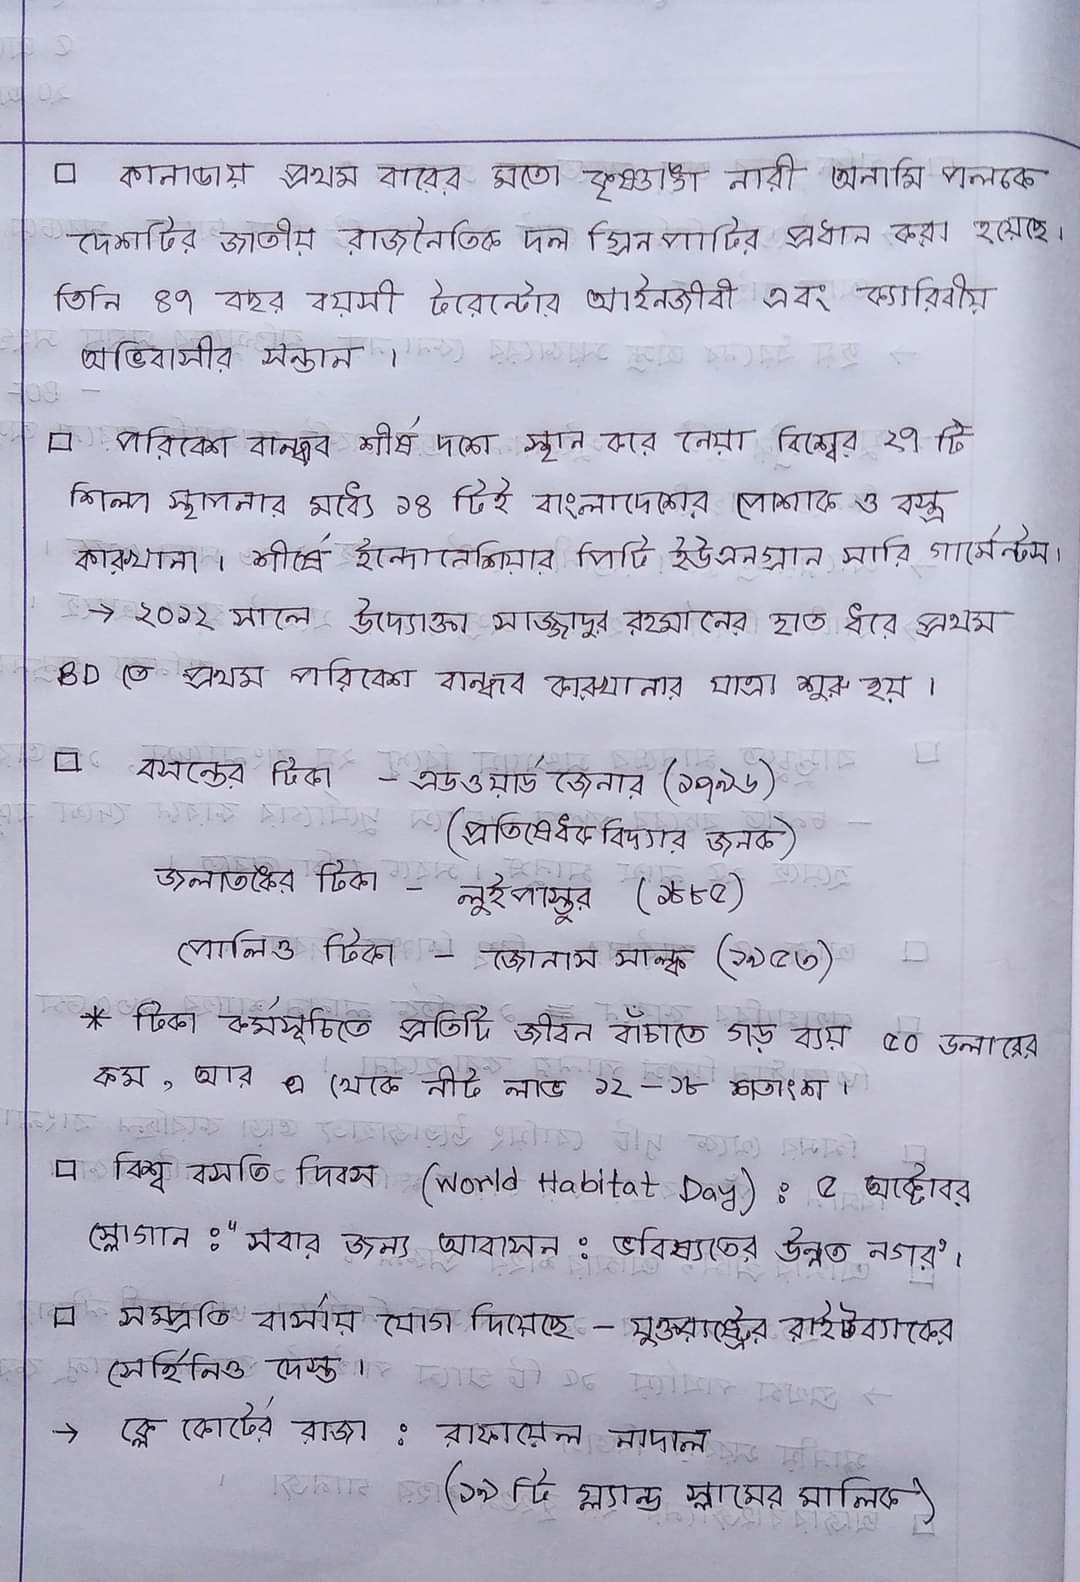 □ কানাডায় প্রথম বারের মতো কৃষ্ণাঙ্গ নারী অনামি পলকে
দেশটির জাতীয় রাজনৈতিক দল গ্রিনপার্টির প্রধান করা হয়েছে।
তিনি ৪৭ বছর বয়সী টরেন্টোর আইনজীবী এবং ক্যারিবীয়
অভিবাসীর সন্তান ।
□ পরিবেশ বান্ধব শীর্ষ দশে স্থান করে নেয়া বিশ্বের ২৭ টি
শিল্প স্থাপনার মধ্যে ১৪ টিই বাংলাদেশের পোশাক ও বস্ত্র
কারখানা । শীর্ষে ইন্দোনেশিয়ার পিটি ইউএনগ্রান সারি গার্মেন্টস।
→ ২০১২ সালে উদ্যোক্তা সাজ্জাদুর রহমানের হাত ধরে প্রথম
BD তে প্রথম পরিবেশ বান্ধব কারখানার যাত্রা শুরু হয় ।
□ বসন্তের টিকা - এডওয়ার্ড জেনার (১৭৯৬)
(প্রতিষেধক বিদ্যার জনক)
জলাতঙ্কের টিকা - লুইপাস্তুর (১৮৮৫)
পোলিও টিকা - জোনাস সাল্ক (১৯৫৩)
* টিকা কর্মসূচিতে প্রতিটি জীবন বাঁচাতে গড় ব্যয় ৫০ ডলারের
কম , আর এ থেকে নীট লাভ ১২ - ১৮ শতাংশ ।
□ বিশ্ব বসতি দিবস (World Habitat Day) : ৫ অক্টোবর
স্লোগান : "সবার জন্য আবাসন : ভবিষ্যতের উন্নত নগর"।
□ সম্প্রতি বার্সায় যোগ দিয়েছে - যুক্তরাষ্ট্রের রাইটব্যাকের
সের্হিনিও দেস্ত ।
→ ক্লে কোর্টের রাজা : রাফায়েল নাদাল
(১৯ টি গ্র্যান্ড স্লামের মালিক)